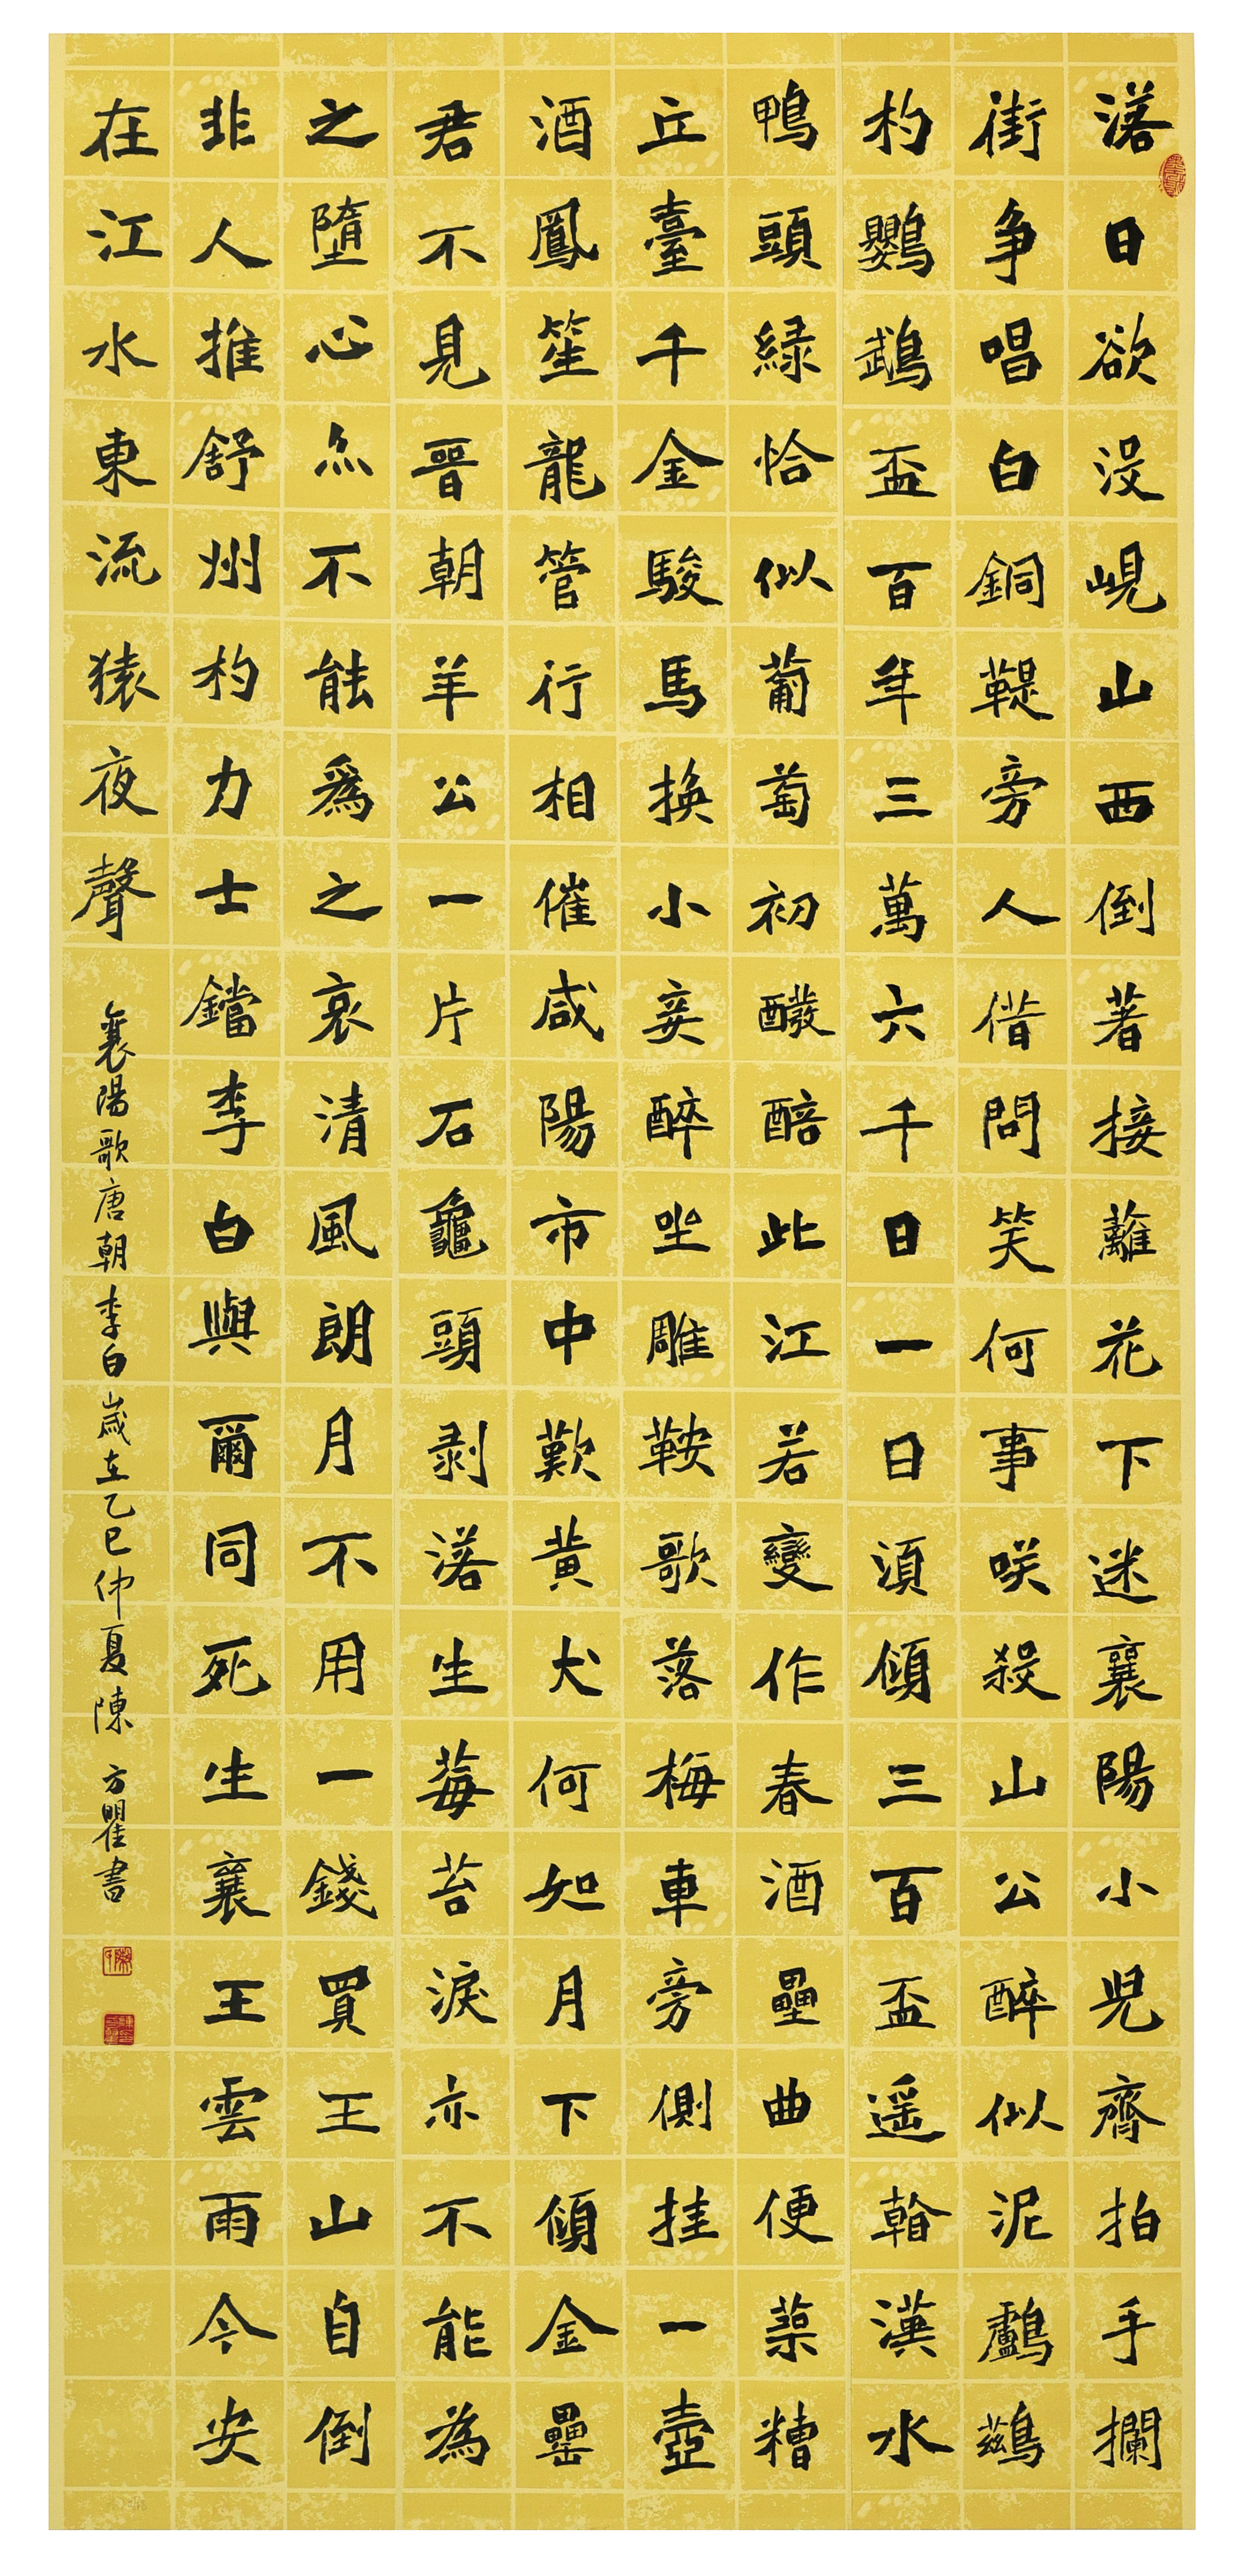 落日欲没峴山西倒著接蘺花下迷襄陽小児齊拍手攔
街争唱白銅鞮旁人借問笑何事咲殺山公醉似泥鸕鷀
杓鸚鵡盃百年三萬六千日一日須傾三百盃遥看漢水
鴨頭緑恰似葡萄初醱醅此江若變作春酒壘曲便築糟
丘臺千金駿馬換小妾醉坐雕鞍歌落梅車旁側挂一壺
酒鳳笙龍管行相催咸陽市中歎黄犬何如月下傾金罍
君不見晉朝羊公一片石龜頭剥落生莓苔淚亦不能為
之墮心亦不能爲之哀清風朗月不用一錢買玉山自倒
非人推舒州杓力士鐺李白與爾同死生襄王雲雨今安
在江水東流猿夜聲
襄陽歌唐朝李白歲在乙巳仲夏陳方瞿書